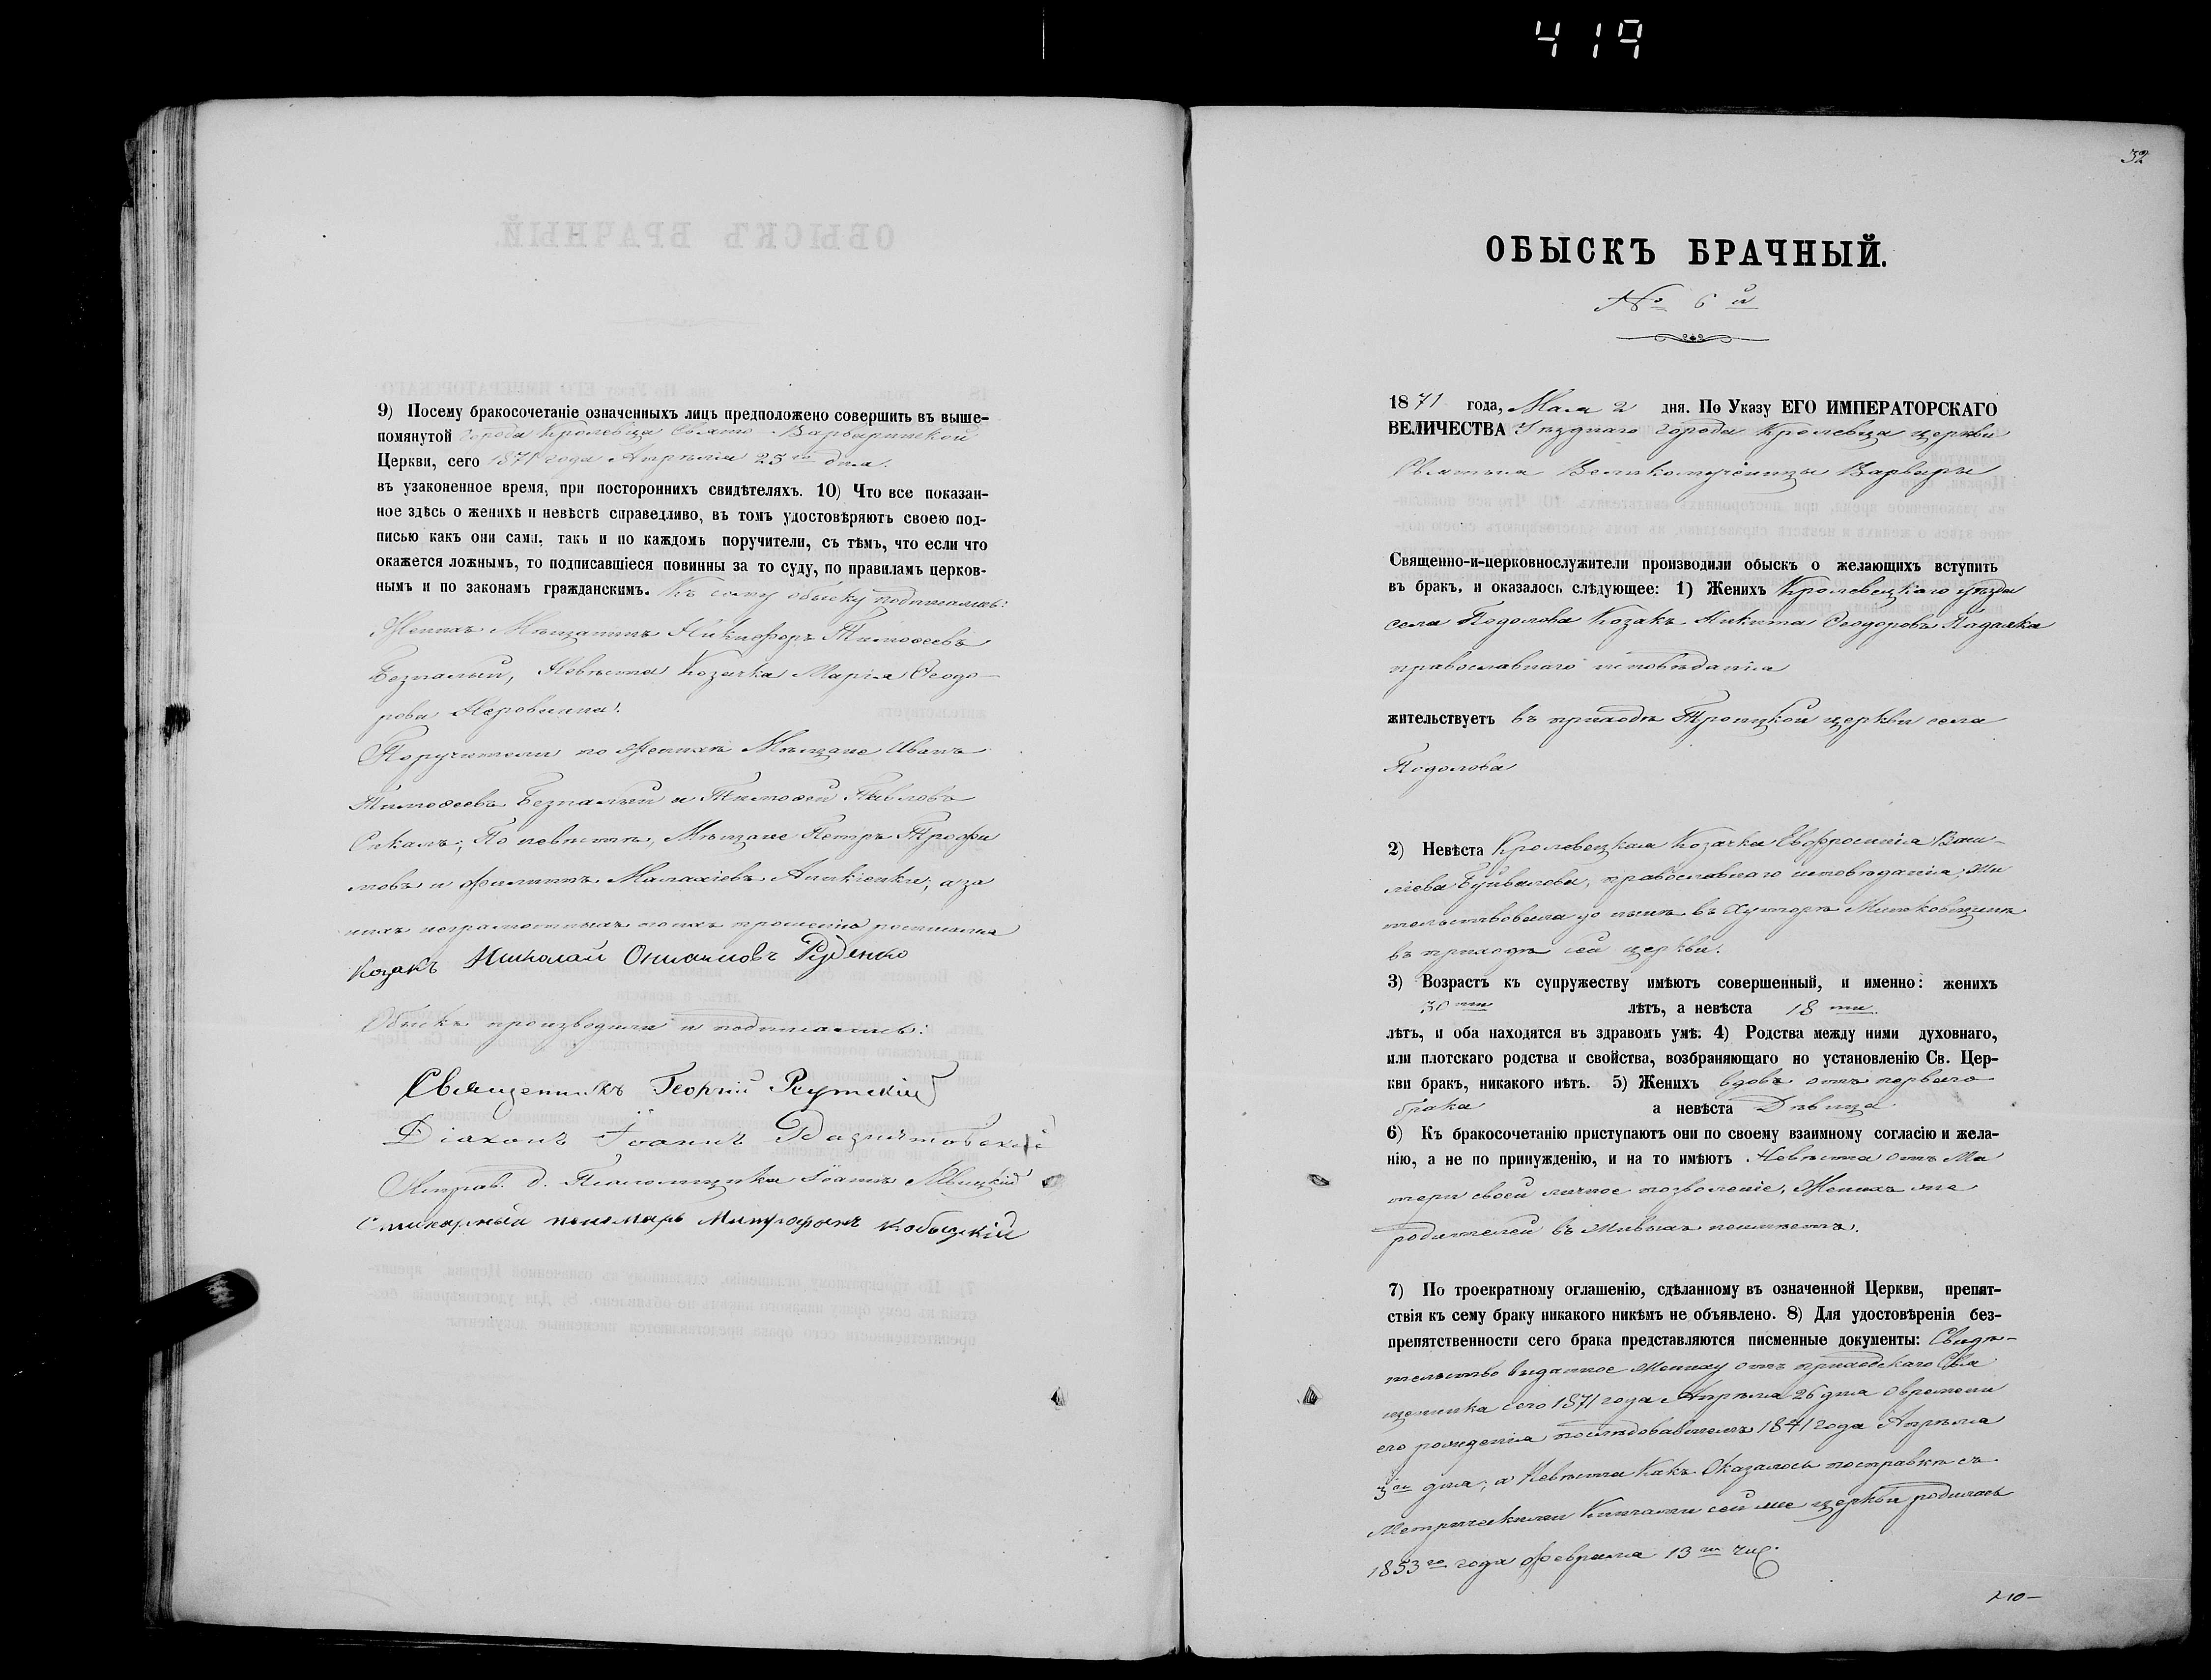 419
9) Посему бракосочетаніе означенныхъ лицъ предположено совершить въ выше-
помянутой города Кролевца Свято-Варваринской
Церкви, сего 1871 года Апрѣля 25го дня.
въ узаконенное время, при постороннихъ свидѣтеляхъ. 10) Что все показан-
ное здѣсь о женихѣ и невѣстѣ справедливо, въ томъ удостовѣряютъ своею под-
писью какъ они сами, такъ и по каждомъ поручители, съ тѣмъ, что если что
окажется ложнымъ, то подписавшіеся повинны за то суду, по правиламъ церков-
нымъ и по законамъ гражданскимъ. Къ сему обыску подписались:
Женихъ Мѣщанинъ Никифоръ Тимофеевъ
Безпалый, Невѣста Козачка Марія Ѳеодо-
рова
Поручители по Женихѣ Мѣщане Иванъ
Тимоѳеевъ Безпалый и Тимоѳей Павловъ
По невѣстѣ, Мѣщане Петръ Трофи
мовъ и Филиппъ Малахіевъ а за
нихъ неграмотныхъ по ихъ прошенію росписался
Козакъ Николай Руденко
Обыскъ производили и подписались:
Священникъ Георгій
Діаконъ Іоаннъ
Исправ. д. Псаломщика Іоаннъ
пономарь Митрофанъ
32
ОБЫСКЪ БРАЧНЫЙ.
№ 6й
1871 года, Мая 2 дня. По Указу ЕГО ИМПЕРАТОРСКАГО
ВЕЛИЧЕСТВА Уѣзднаго города Кролевца церкви
Святыя Великомученицы Варвары
Священно-и-церковнослужители производили обыскъ о желающихъ вступить
въ бракъ, и оказалось слѣдующее: 1) Женихъ Кролевецкаго уѣзда
села Подолова Козакъ Никита Ѳеодоровъ Падалка
православнаго исповѣданія
жительствуетъ въ приходѣ Троицкой церкви села
Подолова
2) Невѣста Кролевецкая Козачка Евфросинія Васи-
ліева православнаго исповѣданія, жи
тельствовала до нынѣ въ Хуторѣ
въ приходѣ сей церкви.
3) Возрастъ къ супружеству имѣютъ совершенный, и именно: женихъ
30ти лѣтъ, а невѣста 18ти
лѣтъ, и оба находятся въ здравомъ умѣ. 4) Родства между ними духовнаго,
или плотскаго родства и свойства, возбраняющаго но установленію Св. Цер-
кви бракъ, никакого нѣтъ. 5) Женихъ вдовъ отъ перваго
брака а невѣста Дѣвица
6) Къ бракосочетанію приступаютъ они по своему взаимному согласію и жела-
нію, а не по принужденію, и на то имѣютъ Невѣста отъ Ма
тери своей личное позволеніе, Женихъ же
родителей въ живыхъ неимѣетъ.
7) По троекратному оглашенію, сдѣланному въ означенной Церкви, препят-
ствія къ сему браку никакого никѣмъ не объявлено. 8) Для удостовѣренія без-
препятственности сего брака представляются писменные документы: Свидѣ-
тельство выданное Жениху отъ приходскаго Свя
щенника сего 1871 года Апрѣля 26 дня о времени
его рожденія послѣдовавшемъ 1841 года Апрѣля
3го дня, а Невѣста Какъ Оказалось по справкѣ съ
Метрическими Книгами сей же церкви родилась
1853го года Февраля 13го чис.